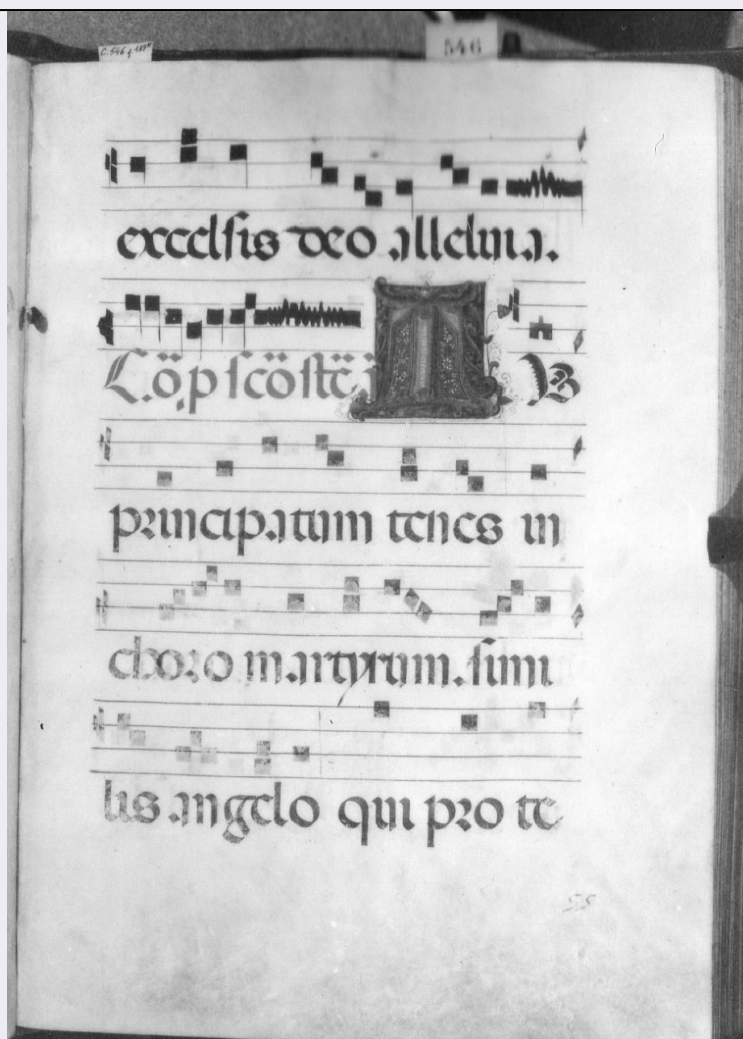 546
excelsis deo alleluia.
principatum tenes in
choro martyrum. simi
lis angelo qui pro te
55